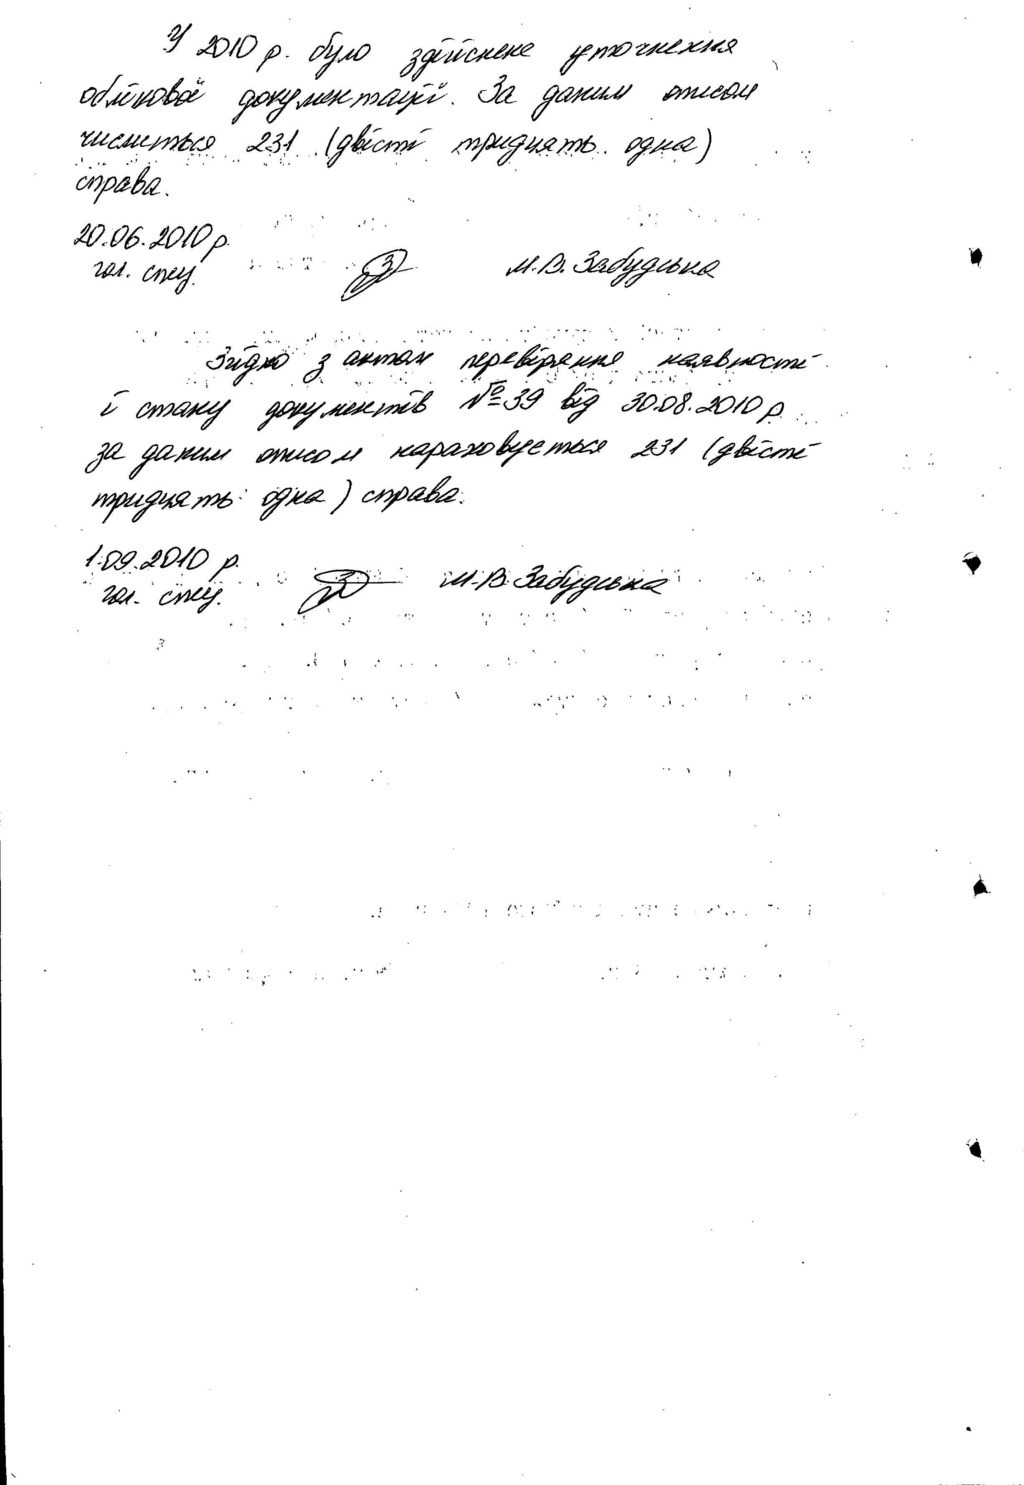 У 2010 р. було здійснене уточнення
облікової документації. За даним описом
числиться 231 (двісті тридцять одна)
справа.
20.06.2010 р.
гол. спец. М.В. Забудська
Згідно з актом перевіряння наявності
і стану документів №39 від 30.08.2010 р.
за даним описом нараховується 231 (двісті
тридцять одна) справа.
1.09.2010 р.
гол. спец. М.В. Забудська